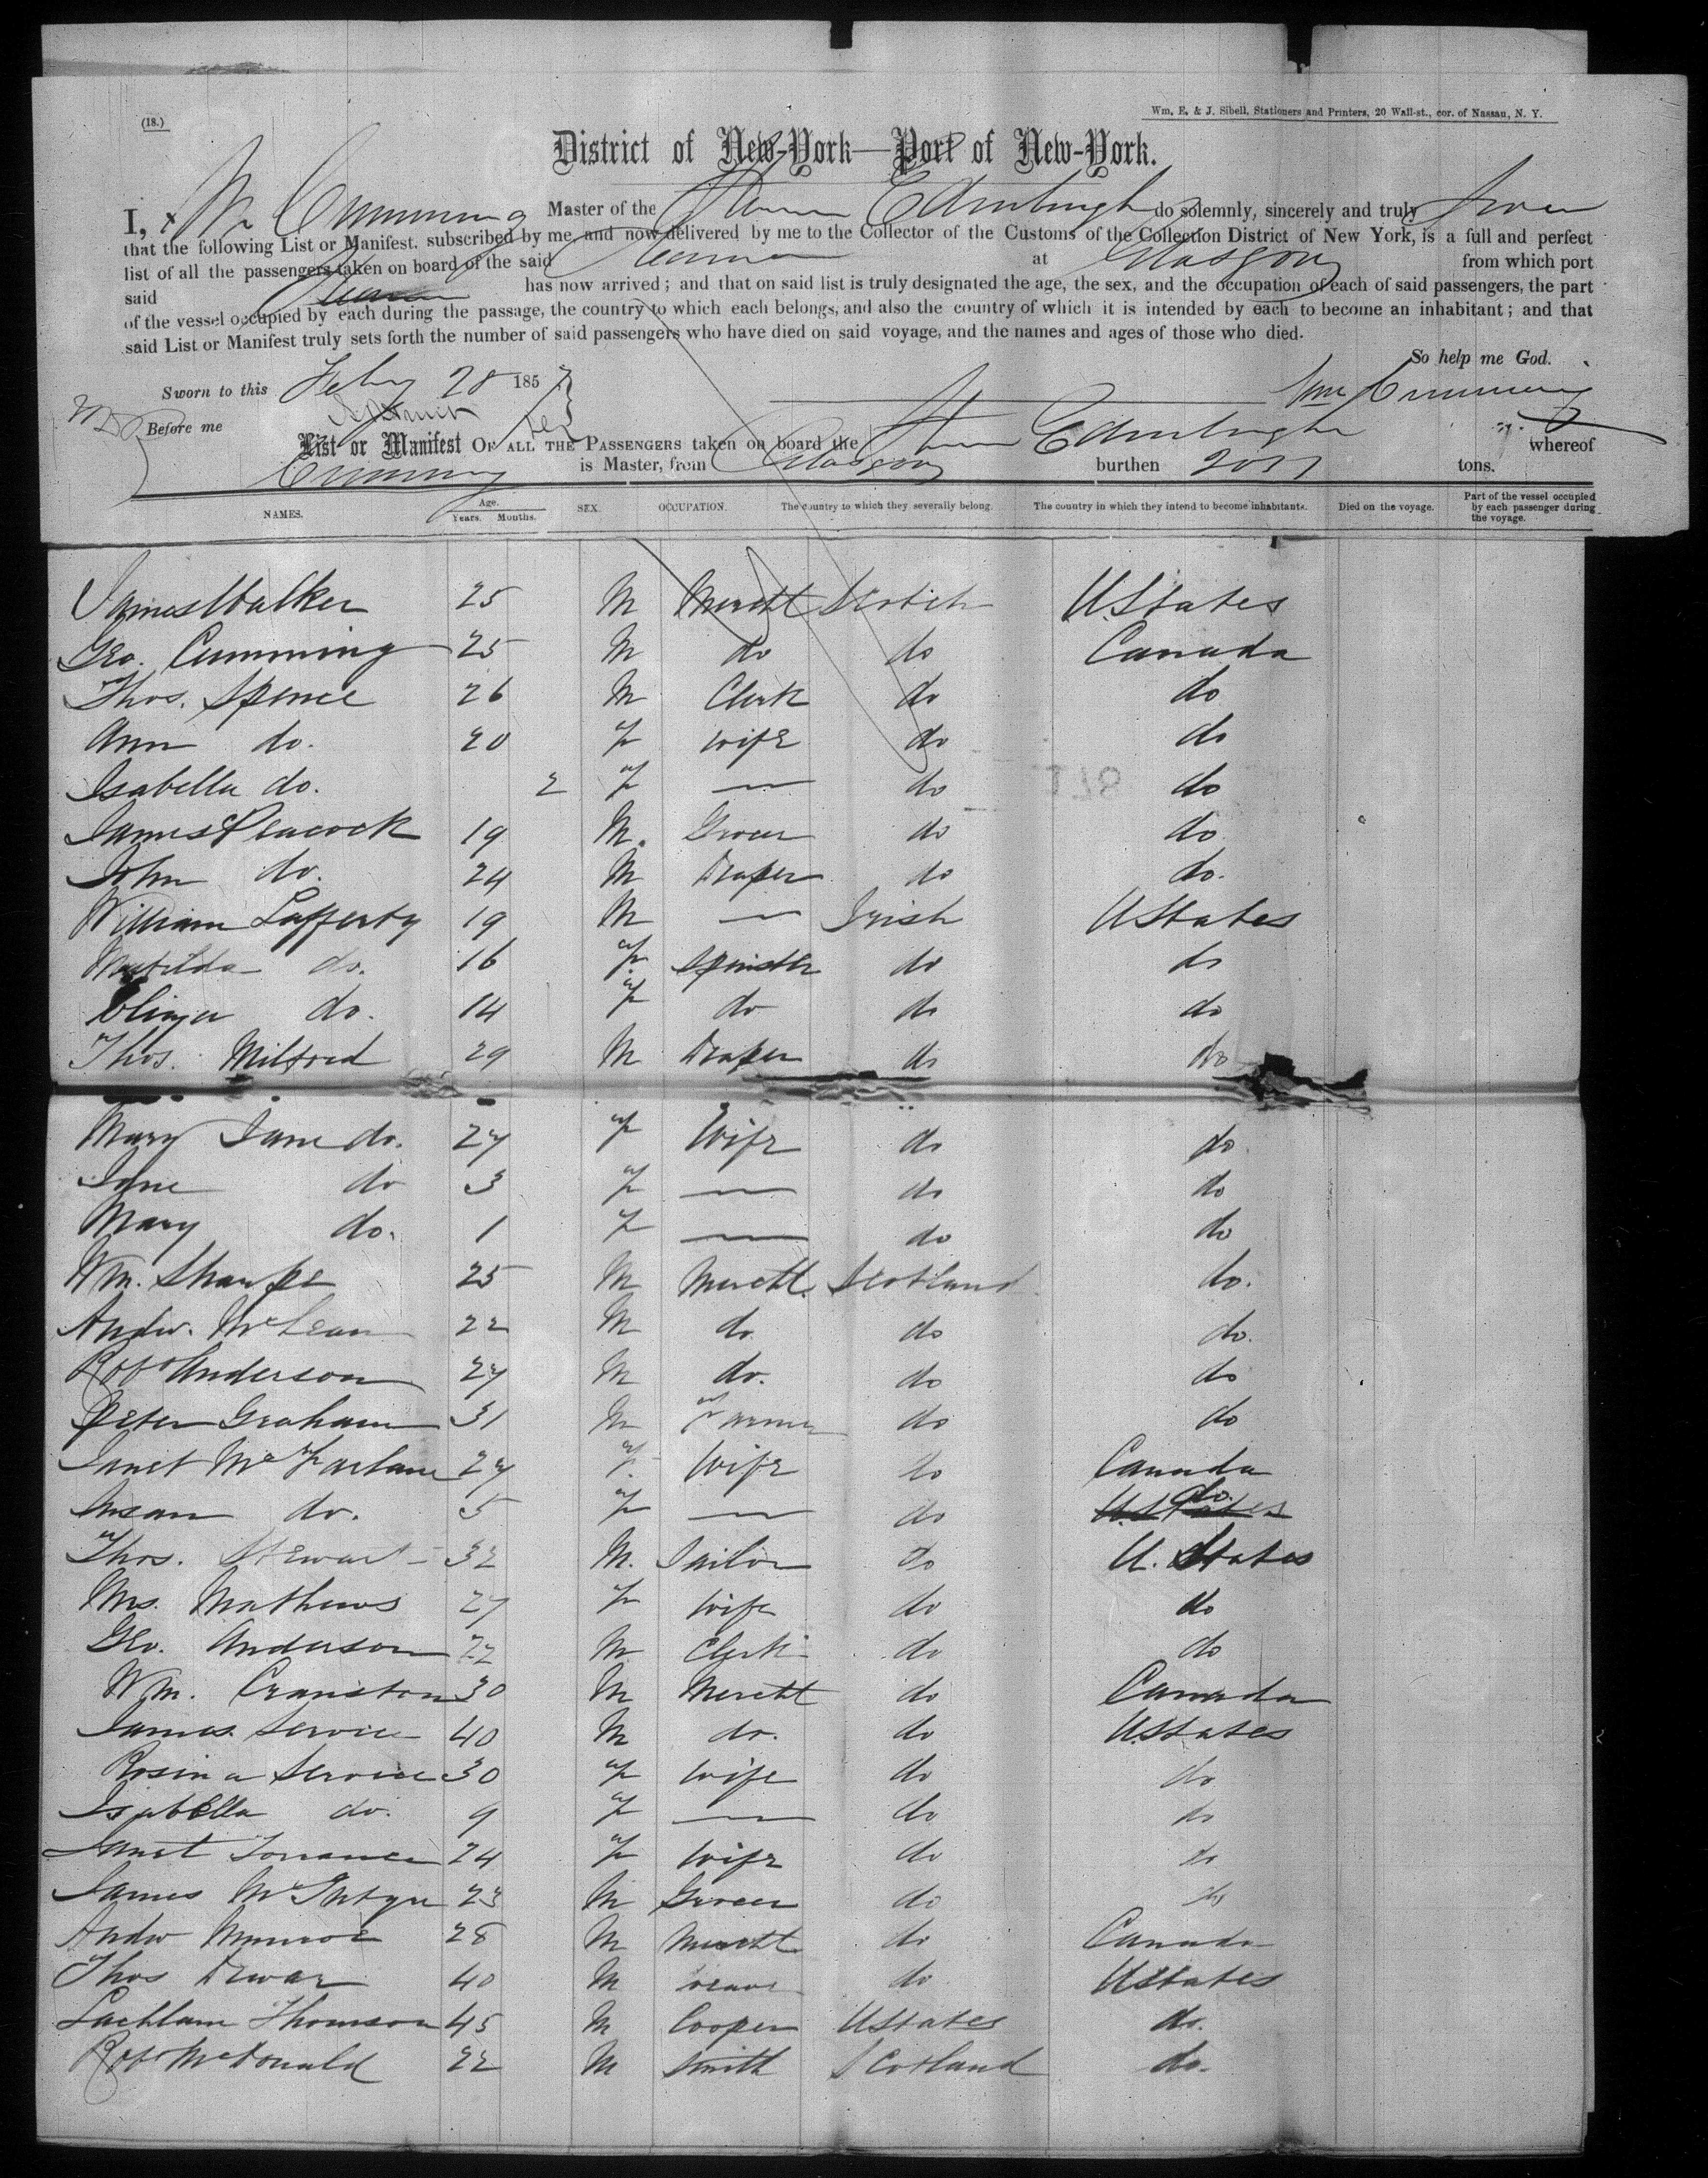 (18.)
Wm. E. & J. Sibell, Stationers and Printers, 20 Wall-st., cor. of Nassau, N. Y.
District of New-York—Port of New-York.
I, Wm Cumming Master of the Steamer Edinburgh do solemnly, sincerely and truly Swear
that the following List or Manifest, subscribed by me, and now delivered by me to the Collector of the Customs of the Collection District of New York, is a full and perfect
list of all the passengers taken on board of the said Steamer at Glasgow from which port
said Steamer has now arrived; and that on said list is truly designated the age, the sex, and the occupation of each of said passengers, the part
of the vessel occupied by each during the passage, the country to which each belongs, and also the country of which it is intended by each to become an inhabitant; and that
said List or Manifest truly sets forth the number of said passengers who have died on said voyage, and the names and ages of those who died.
So help me God.
Sworn to this Feby 28 1857
Wm Cumming
Before me
List or Manifest OF ALL THE PASSENGERS taken on board the Steamer Edinburgh whereof
Cumming is Master, from Glasgow burthen tons.
NAMES. Age. Years. Months. SEX. OCCUPATION. The country to which they severally belong. The country in which they intend to become inhabitants. Died on the voyage. Part of the vessel occupied by each passenger during the voyage.
James Walker 25 M Mercht Scotch UStates
Geo. Cumming 25 M do do Canada
Thos. Spence 26 M Clerk do do
Ann do. 20 F wife do do
Isabella do. 2 F — do do
James Peacock 19 M. Grocer do do
John do. 24 M Draper do do.
William Lafferty 19 M — Irish UStates
Matilda do. 16 F. Spinster do do
Eliza do. 14 F do do do
Thos. Milford 29 M Draper do do
Mary Jane do. 27 F Wife do do
Jane do 3 F — do do
Mary do. 1 F — do do
Wm. Sharpe 25 M Mercht. Scotland do.
Andw. McLean 22 M do do do.
Robt Anderson 27 M do. do do
Peter Graham 31 M Farmer do do
Janet McFarlane 27 F. Wife do Canada
Susan do. 5 F — do UStates do.
Thos. Stewart 32 M. Sailor do U. States
Mrs. Mathews 27 F wife do do
Geo. Anderson 22 M Clerk do do
Wm. Cranston 30 M Mercht do Canada
James Service 40 M do. do UStates
Rosina Service 30 F wife do do
Isabella do. 9 F — do do
Janet Torrance 24 F Wife do do
James McIntyre 23 M Grocer do do
Andw Munroe 28 M Mercht do Canada
Thos Dewar 40 M do UStates
Lachlane Thomson 45 M Cooper UStates do.
Robt McDonald 22 M Smith Scotland do.